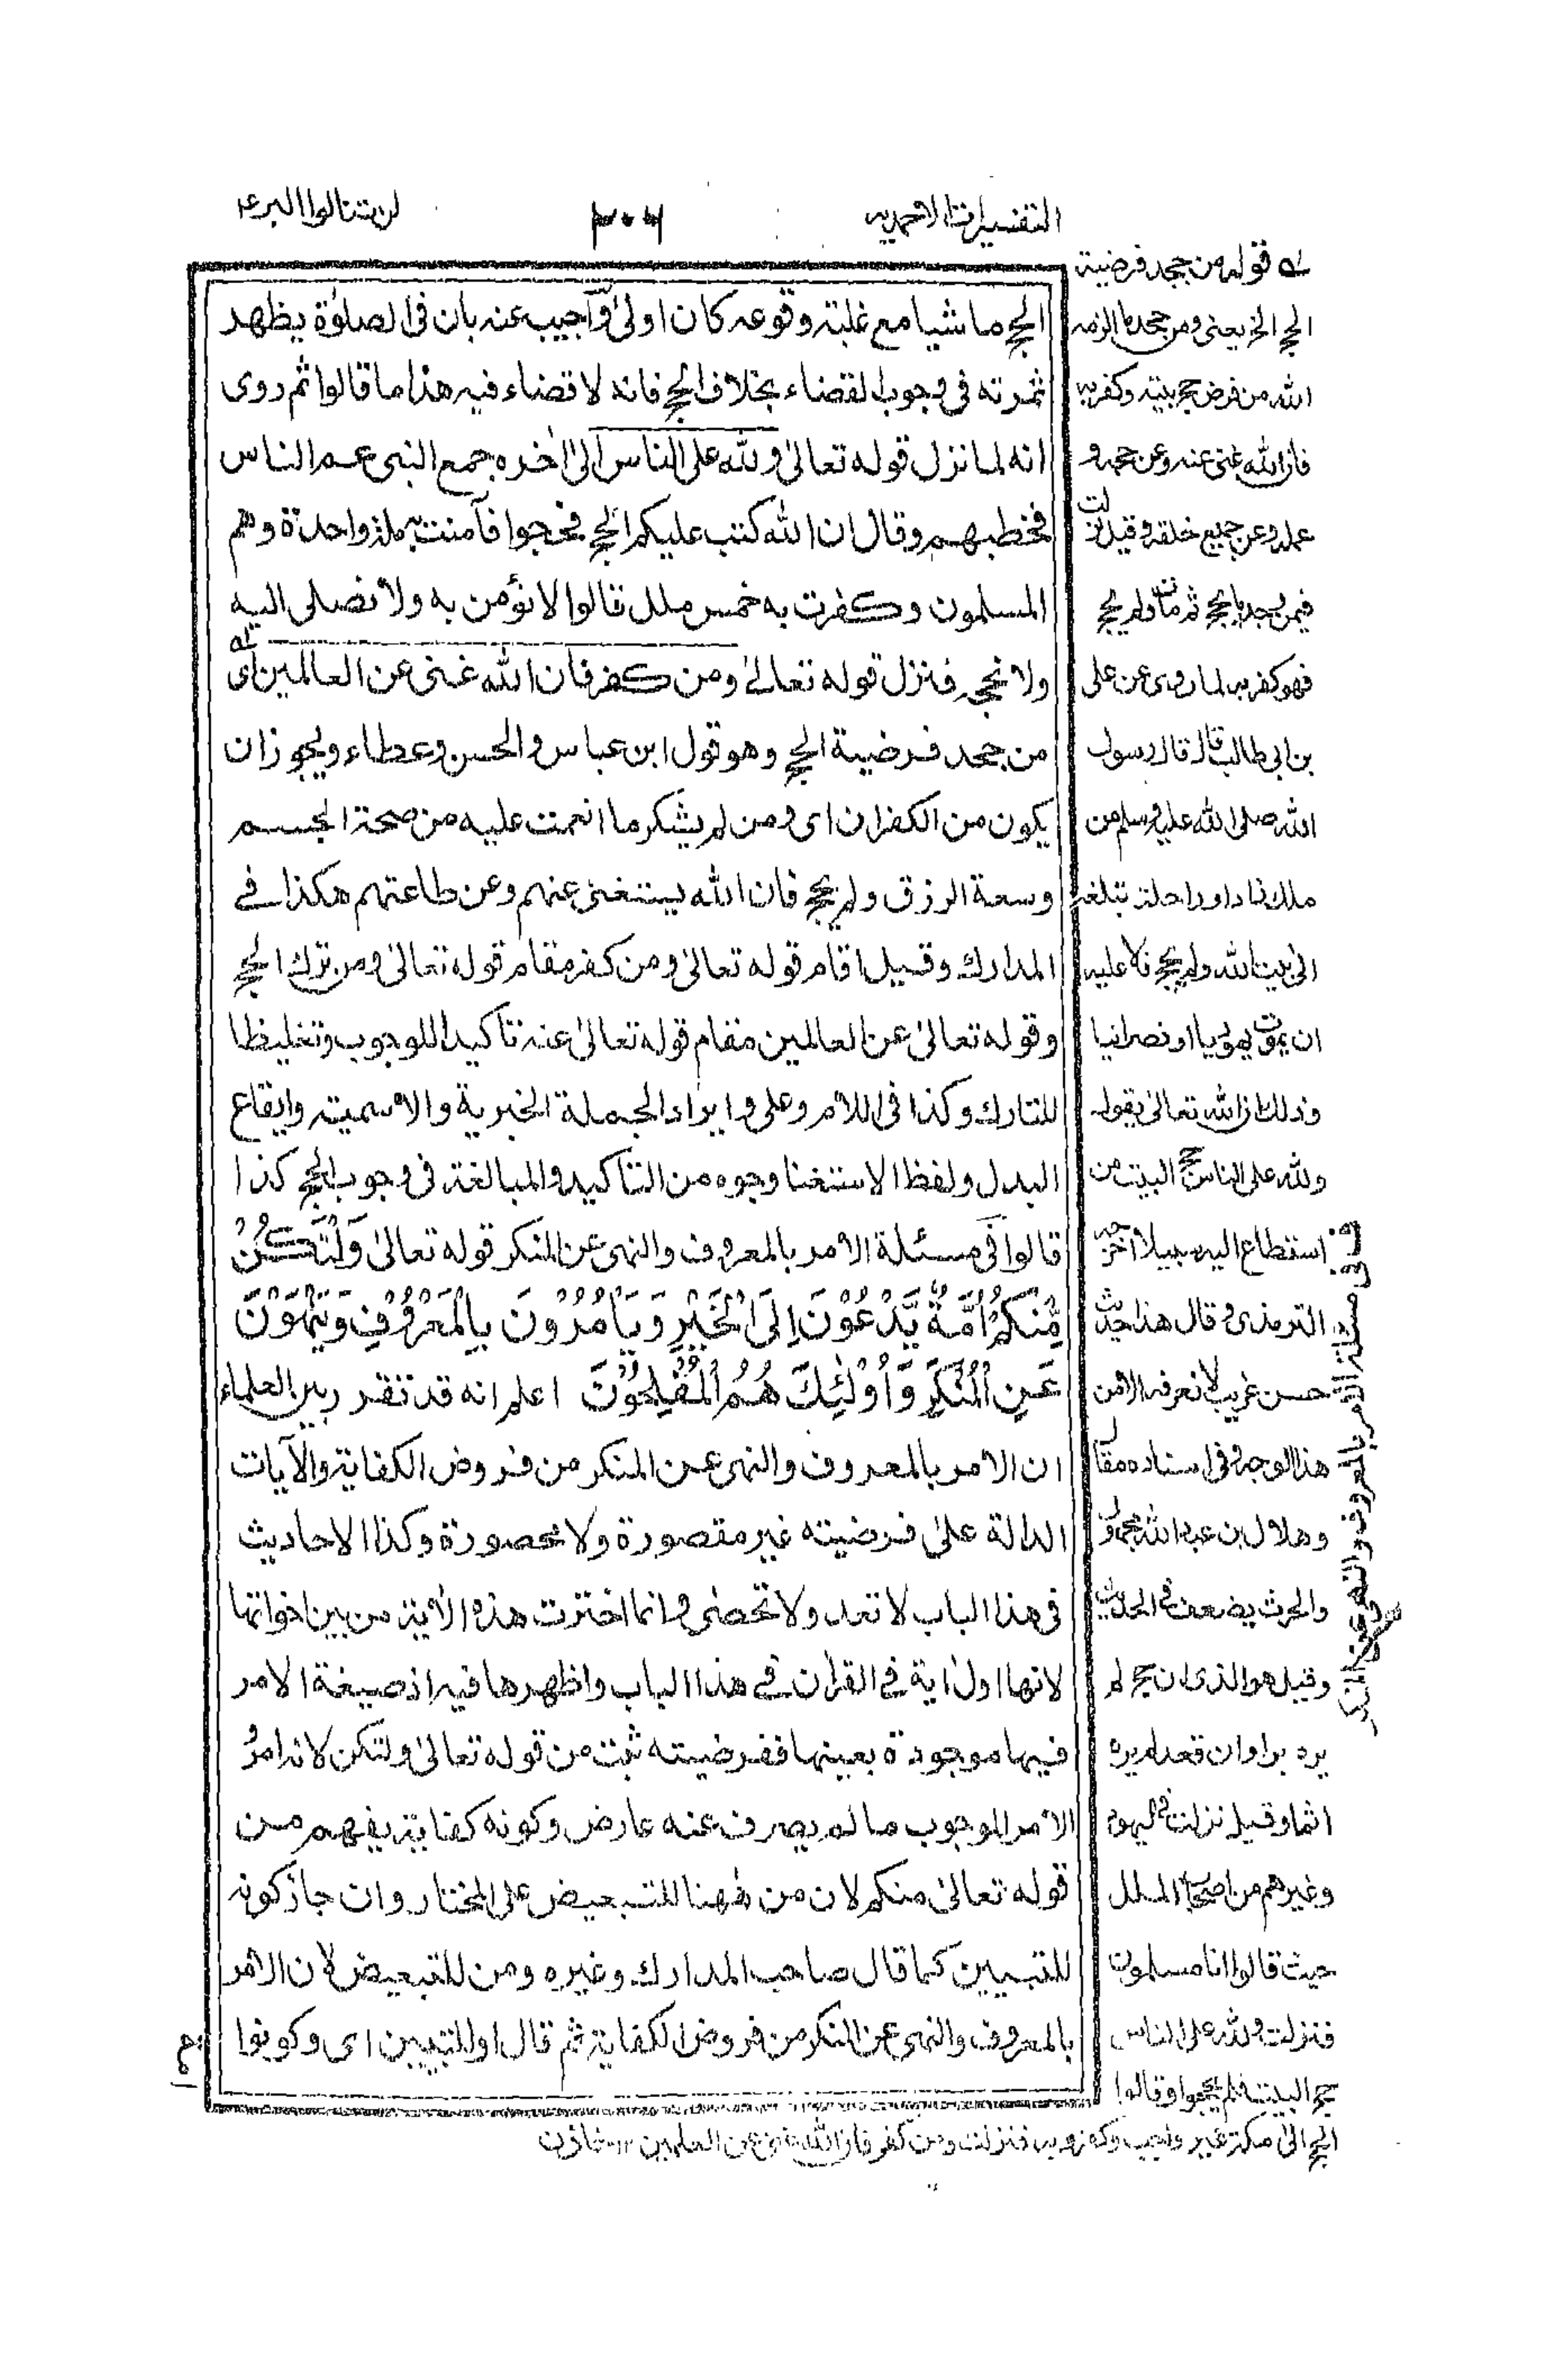 التفسيرات الاحمدية
٢٠٦
لن تنالوا البر ٤
الحج ماشيا مع غلبة وقوعه كان اولىٰ وَاجيب عنه بان فى الصلوٰة يظهر
ثمرته فى وجوب القضاء بخلاف الحج فانه لا قضاء فيه هذا ما قالوا ثم روى
انه لما نزل قوله تعالىٰ ولله على الناس الىٰ اٰخره جمع النبى عم الناس
فخطبهم وقال ان الله كتب عليكم الحج فحجوا فآمنت به ملة واحدة وهم
المسلمون وكفرت به خمس ملل قالوا لا نؤمن به ولا نصلى اليه
ولا نحجه فنزل قوله تعالىٰ ومن كفر فان الله غنى عن العالمين اى
من جحد فرضية الحج وهو قول ابن عباس والحسن وعطاء ويجوز ان
يكون من الكفران اى ومن لم يشكر ما انعمت عليه من صحة الجسم
وسعة الرزق ولم يحج فان الله يستغنى عنهم وعن طاعتهم هكذا فى
المدارك وقيل اقام قوله تعالىٰ ومن كفر مقام قوله تعالىٰ ومن ترك الحج
وقوله تعالىٰ عن العالمين مقام قوله تعالىٰ عنه تاكيدا للوجوب وتغليظا
للتارك وكذا فى اللام وعلى وايراد الجملة الخبرية والاسمية وايقاع
البدل ولفظ الاستغنا وجوه من التاكيد والمبالغة فى وجوب الحج كذا
قالوا فى مسئلة الامر بالمعروف والنهى عن المنكر قوله تعالىٰ وَلْتَكُنْ
مِّنْكُمْ اُمَّةٌ يَّدْعُوْنَ اِلَى الْخَيْرِ وَيَاْمُرُوْنَ بِالْمَعْرُوْفِ وَيَنْهَوْنَ
عَنِ الْمُنْكَرِ وَاُولٰٓئِكَ هُمُ الْمُفْلِحُوْنَ اعلم انه قد تقرر بين العلماء
ان الامر بالمعروف والنهى عن المنكر من فروض الكفاية والآيات
الدالة علىٰ فرضيته غير مقصورة ولا محصورة وكذا الاحاديث
فى هذا الباب لا تعد ولا تحصىٰ وانما اخترت هذه الاٰية من بين اخواتها
لانها اول اٰية فى القراٰن فى هذا الباب واظهرها فيه اذ صيغة الامر
فيها موجودة بعينها ففرضيته ثبت من قوله تعالىٰ ولتكن لانه امرٌ
الامر للوجوب ما لم يصرف عنه عارض وكونه كفاية يفهم من
قوله تعالىٰ منكم لان من هٰهنا للتبعيض على المختار وان جاز كونه
للتبيين كما قال صاحب المدارك وغيره ومن للتبعيض لان الامر
بالمعروف والنهى عن المنكر من فروض الكفاية ثم قال او للتبيين اى وكونوا
له قوله من جحد فرضية
الحج الخ يعنى ومن جحد ما الزمه
الله من فرض حج بيته وكفر به
فان الله غنى عنه وعن حجه و
عمله وعن جميع خلقه وقيل نزلت
فيمن وجد ما يحج به ثم مات ولم يحج
فهو كفر به لما روى عن على
بن ابى طالب قال قال رسول
الله صلى الله عليه وسلم من
ملك زادا وراحلة تبلغه
الى بيت الله ولم يحج فلا عليه
ان يموت يهوديا او نصرانيا
وذلك ان الله تعالىٰ يقول
ولله على الناس حج البيت من
استطاع اليه سبيلا اخرجه
الترمذى وقال هذا حديث
حسن غريب لا نعرفه الا من
هذا الوجه وفى اسناده مقال
وهلال بن عبد الله مجهول
والحرث يضعف فى الحديث
وقيل هو الذى ان حج لم
يره برا وان قعد لم يره
اثما وقيل نزلت فى اليهود
وغيرهم من اصحاب الملل
حيث قالوا انا مسلمون
فنزلت ولله على الناس
حج البيت فلم يحجوا وقالوا
الحج الىٰ مكة غير واجب وكفروا به فنزلت ومن كفر فان الله غنى عن العلمين ١٢ خازن
فى مسئلة الامر بالمعروف والنهى عن المنكر